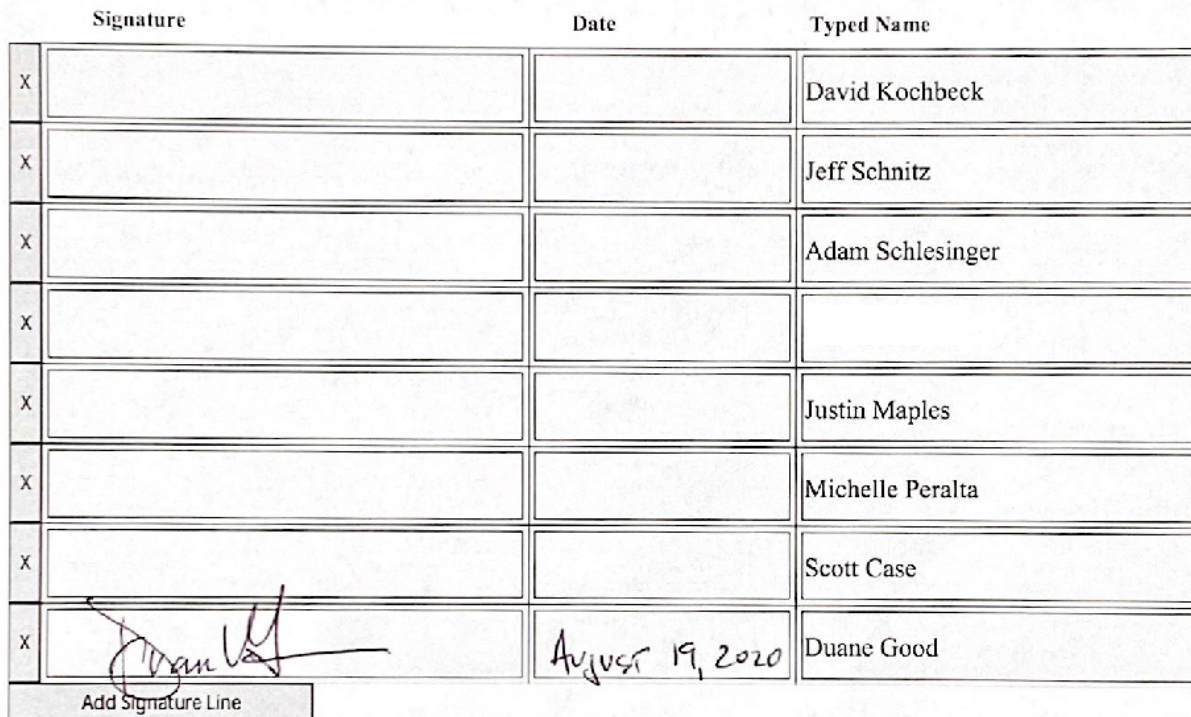 Signature Date Typed Name
X David Kochbeck
X Jeff Schnitz
X Adam Schlesinger
X
X Justin Maples
X Michelle Peralta
X Scott Case
X August 19, 2020 Duane Good
Add Signature Line